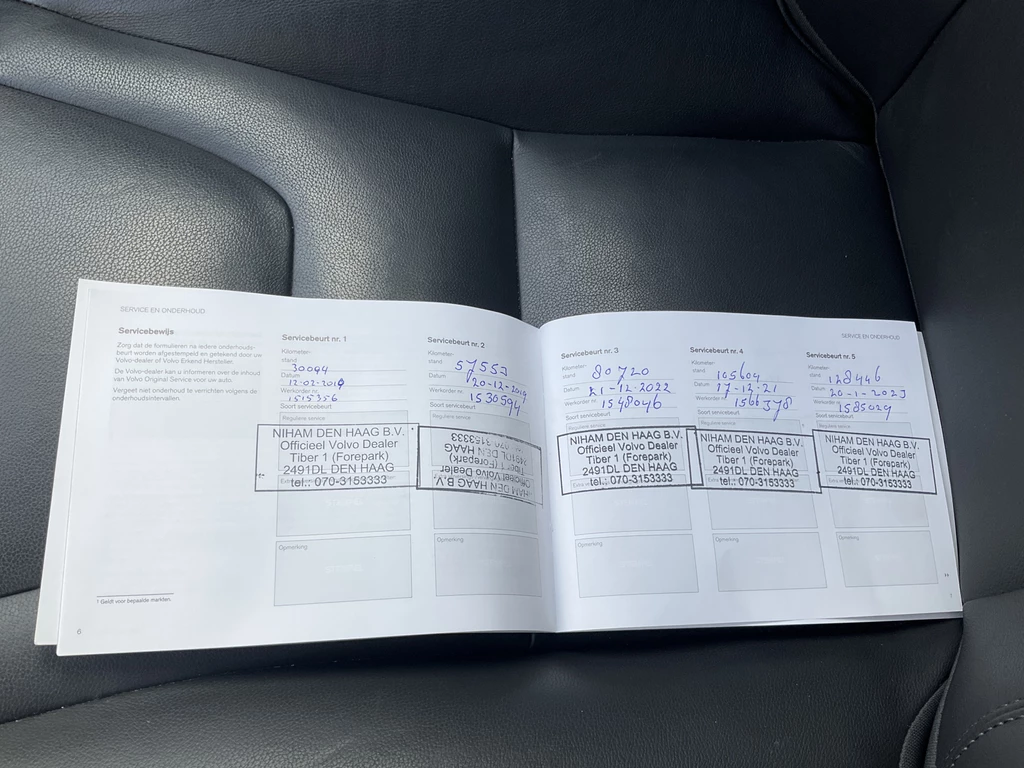 SERVICE EN ONDERHOUD
Servicebewijs
Zorg dat de formulieren na iedere onderhouds-
beurt worden afgestempeld en getekend door uw
Volvo-dealer of Volvo Erkend Hersteller.
De Volvo-dealer kan u informeren over de inhoud
van Volvo Original Service voor uw auto.
Vergeet niet onderhoud te verrichten volgens de
onderhoudsintervallen.
1 Geldt voor bepaalde markten.
6
Servicebeurt nr. 1
Kilometer-
stand
30094
Datum
12-02-2019
Werkorder nr.
1515356
Soort servicebeurt
Reguliere service
NIHAM DEN HAAG B.V.
Officieel Volvo Dealer
Tiber 1 (Forepark)
2491DL DEN HAAG
tel.: 070-3153333
Opmerking
Servicebeurt nr. 2
Kilometer-
stand
57553
Datum
20-12-2019
Werkorder nr.
1530594
Soort servicebeurt
Reguliere service
HAM DEN HAAG B.V.
Officieel Volvo Dealer
Tiber 1 (Forepark)
2491DL DEN HAAG
070-3153333
Opmerking
SERVICE EN ONDERHOUD
Servicebeurt nr. 3
Kilometer-
stand
80720
Datum
21-12-2022
Werkorder nr.
1548046
Soort servicebeurt
Reguliere service
NIHAM DEN HAAG B.V.
Officieel Volvo Dealer
Tiber 1 (Forepark)
2491DL DEN HAAG
tel.: 070-3153333
Opmerking
Servicebeurt nr. 4
Kilometer-
stand
105604
Datum
17-12-21
Werkorder nr.
1566378
Soort servicebeurt
Reguliere service
NIHAM DEN HAAG B.V.
Officieel Volvo Dealer
Tiber 1 (Forepark)
2491DL DEN HAAG
tel.: 070-3153333
Opmerking
Servicebeurt nr. 5
Kilometer-
stand
128446
Datum
20-1-2023
Werkorder nr.
1585029
Soort servicebeurt
Reguliere service
NIHAM DEN HAAG B.V.
Officieel Volvo Dealer
Tiber 1 (Forepark)
2491DL DEN HAAG
tel.: 070-3153333
Opmerking